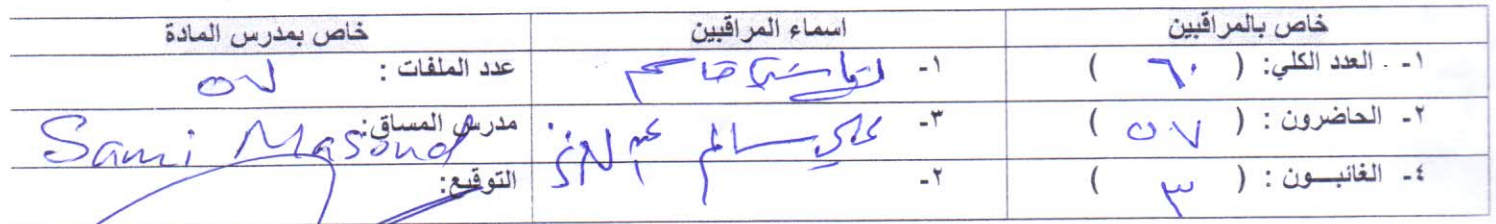 خاص بالمراقبين اسماء المراقبين خاص بمدرس المادة
١- العدد الكلي: ( ٦٠ ) ١- قاسم عدد الملفات : ٥٧
٢- الحاضرون : ( ٥٧ ) ٣- علي سالم مدرس المساق: Sami Masoud
٤- الغائبـــون : ( ٣ ) ٢- التوقيع: